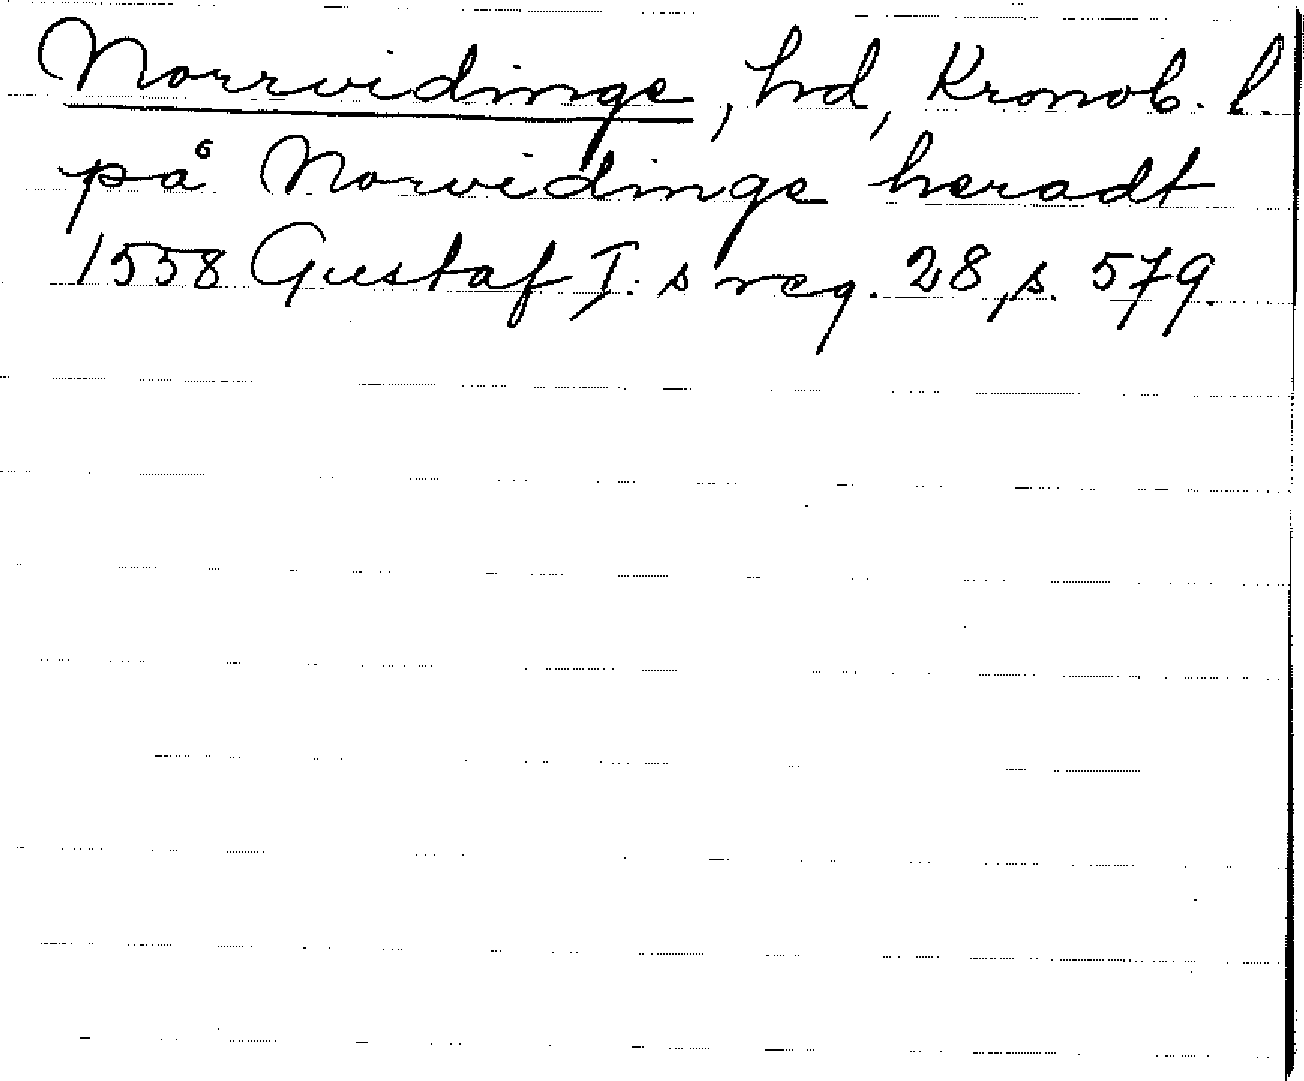 Norrvidinge, hd, Kronob. l.
på Norvidinge heradt
1558 Gustaf I. s reg. 28, s. 579.